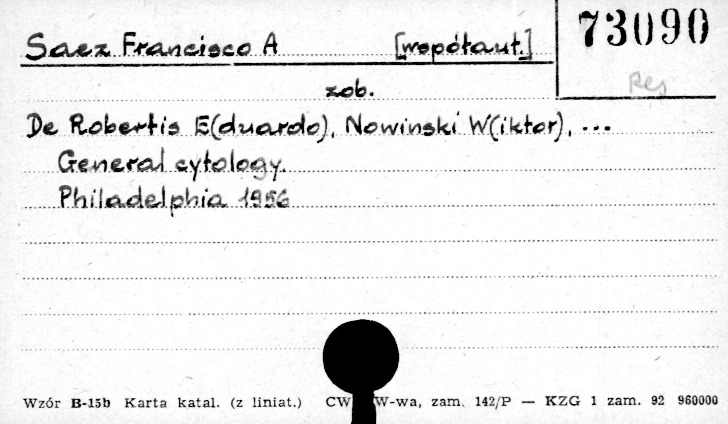 Saez Francisco A [współaut.] 73090
Res
zob.
De Robertis E(duardo), Nowinski W(iktor), ...
General cytology.
Philadelphia 1956
Wzór B-15b Karta katal. (z liniat.) CW W-wa, zam. 142/P — KZG 1 zam. 92 960000